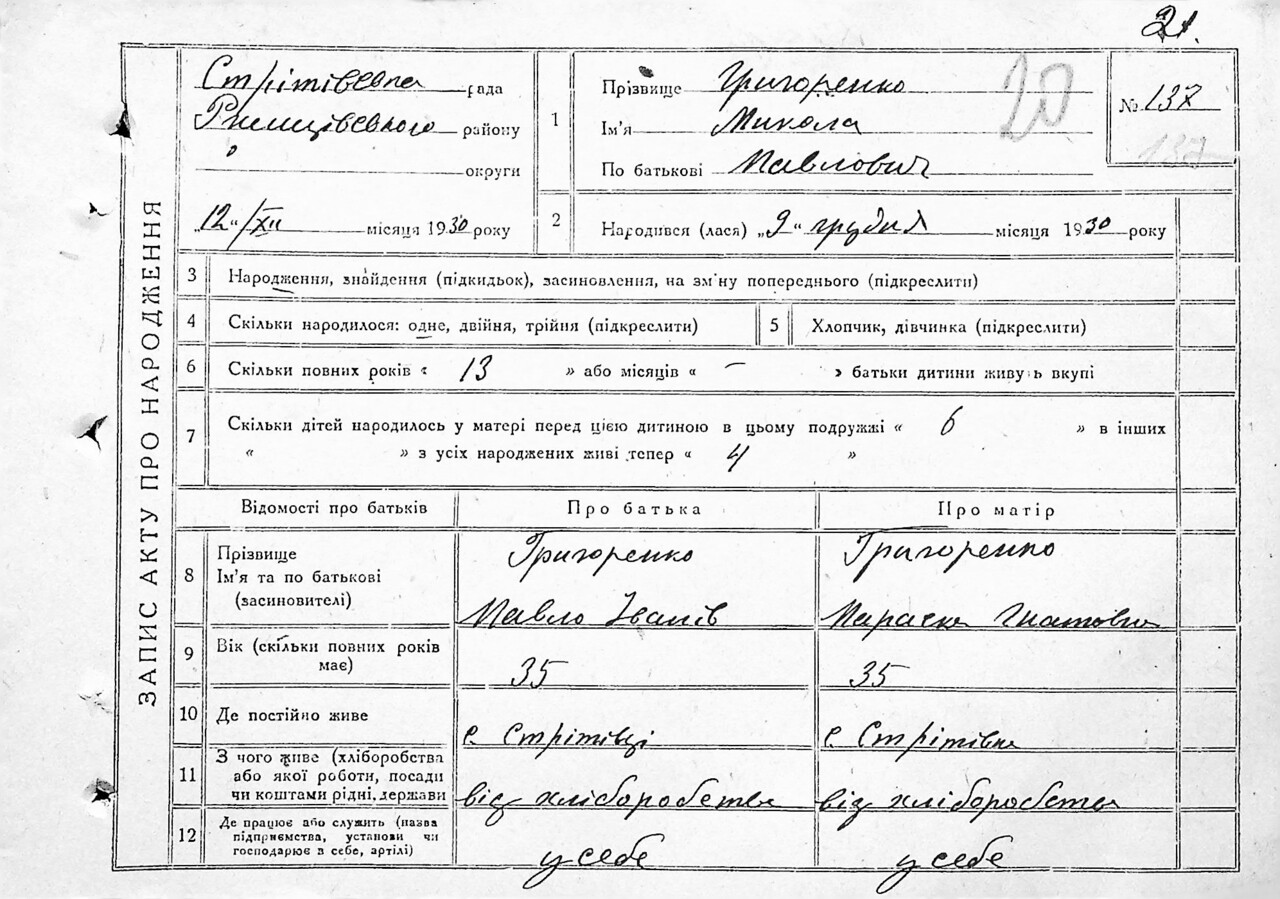 21.
20
ЗАПИС АКТУ ПРО НАРОДЖЕННЯ
Стрітівська рада
району
округи
"12"/XII місяця 1930 року
1
Прізвище Григоренко
Ім'я Микола
По батькові Павлович
№ 137
137
2
Народився (лася) „9" грудня місяця 1930 року
3 Народження, знайдення (підкидьок), засиновлення, на зм'ну попереднього (підкреслити)
4 Скільки народилося: одне, двійня, трійня (підкреслити)
5 Хлопчик, дівчинка (підкреслити)
6 Скільки повних років « 13 » або місяців « – » батьки дитини живуть вкупі
7 Скільки дітей народилось у матері перед цією дитиною в цьому подружжі « 6 » в інших
« » з усіх народжених живі тепер « 4 »
Відомості про батьків Про батька Про матір
8 Прізвище Григоренко Григоренко
Ім'я та по батькові
(засиновителі) Павло Іванів Параска Гнатовна
9 Вік (скільки повних років має) 35 35
10 Де постійно живе с. Стрітівці с. Стрітівка
11 З чого живе (хліборобства
або якої роботи, посади
чи коштами рідні, держави від хліборобства від хліборобства
12 Де працює або служить (назва
підприємства, установи чи
господарює з себе, артілі) у себе у себе